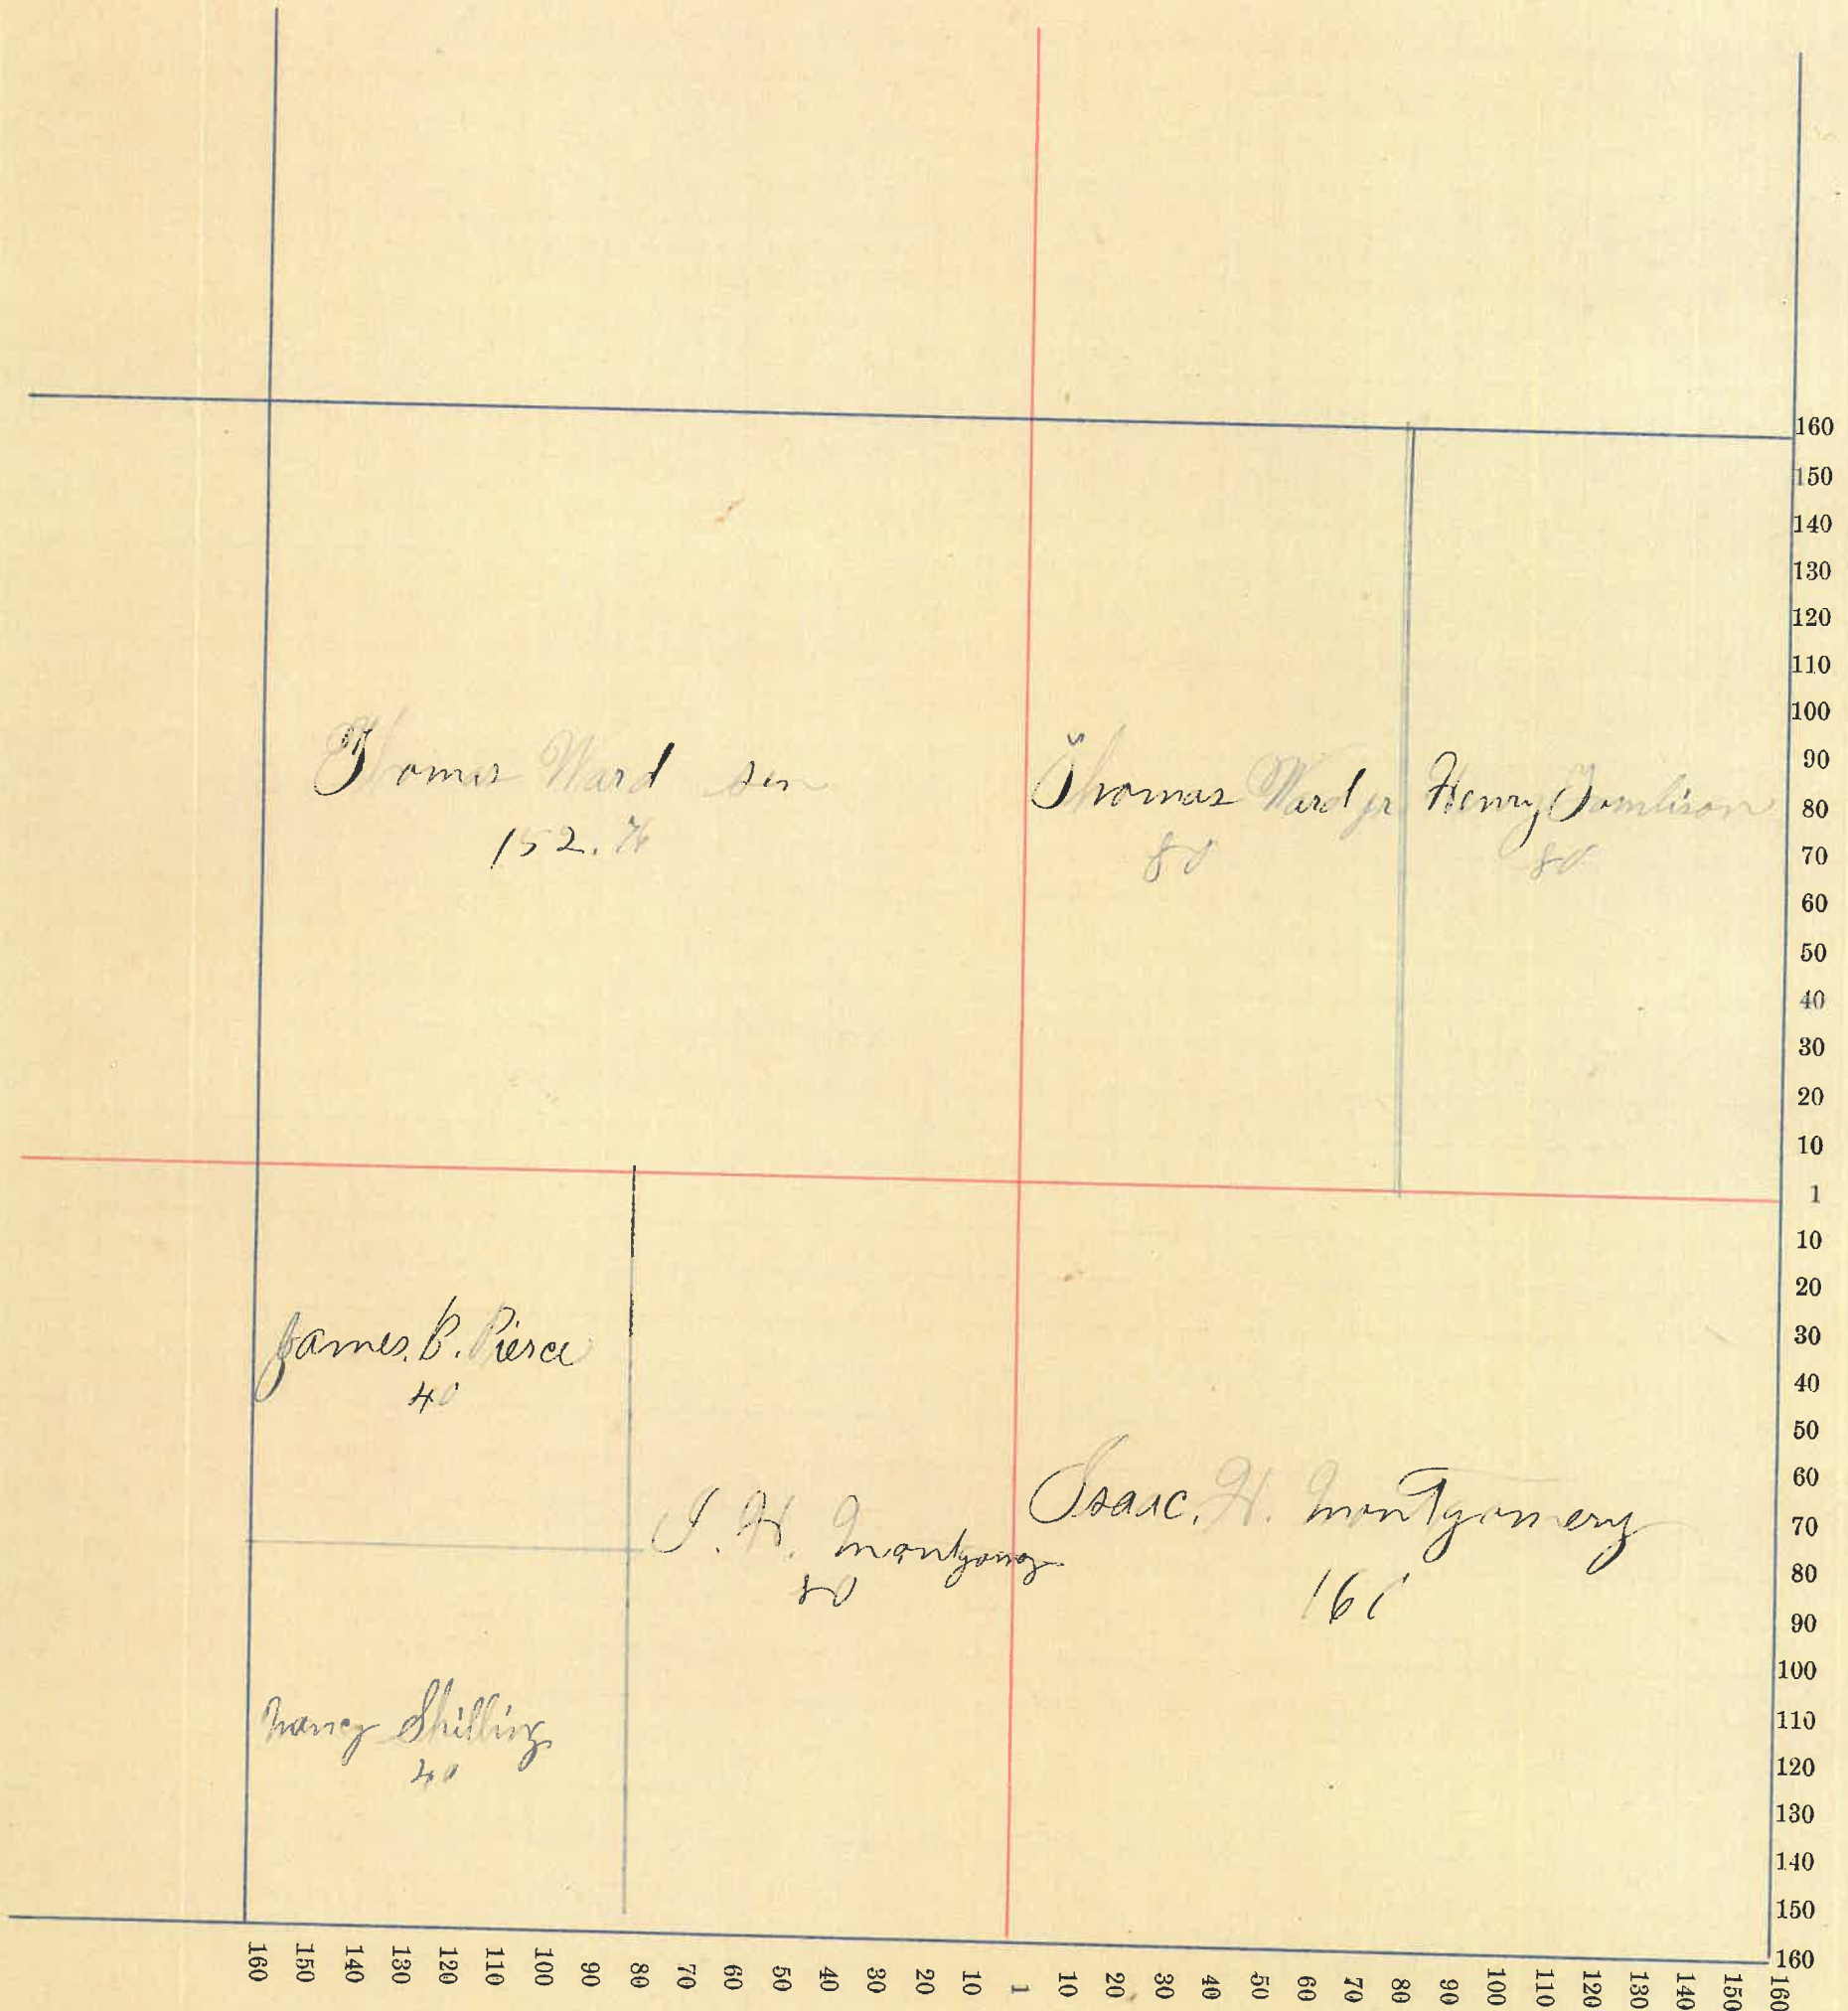 Thomas Ward sen
152.76
Thomas Ward jr
80
Henry Tomlison
80
James. B. Pierce
40
I. H. Montgomey
80
Isaac. H. Montgomery
160
Nancy Shilling
40
160
150
140
130
120
110
100
90
80
70
60
50
40
30
20
10
1
10
20
30
40
50
60
70
80
90
100
110
120
130
140
150
160
160 150 140 130 120 110 100 90 80 70 60 50 40 30 20 10 1 10 20 30 40 50 60 70 80 90 100 110 120 130 140 150 160